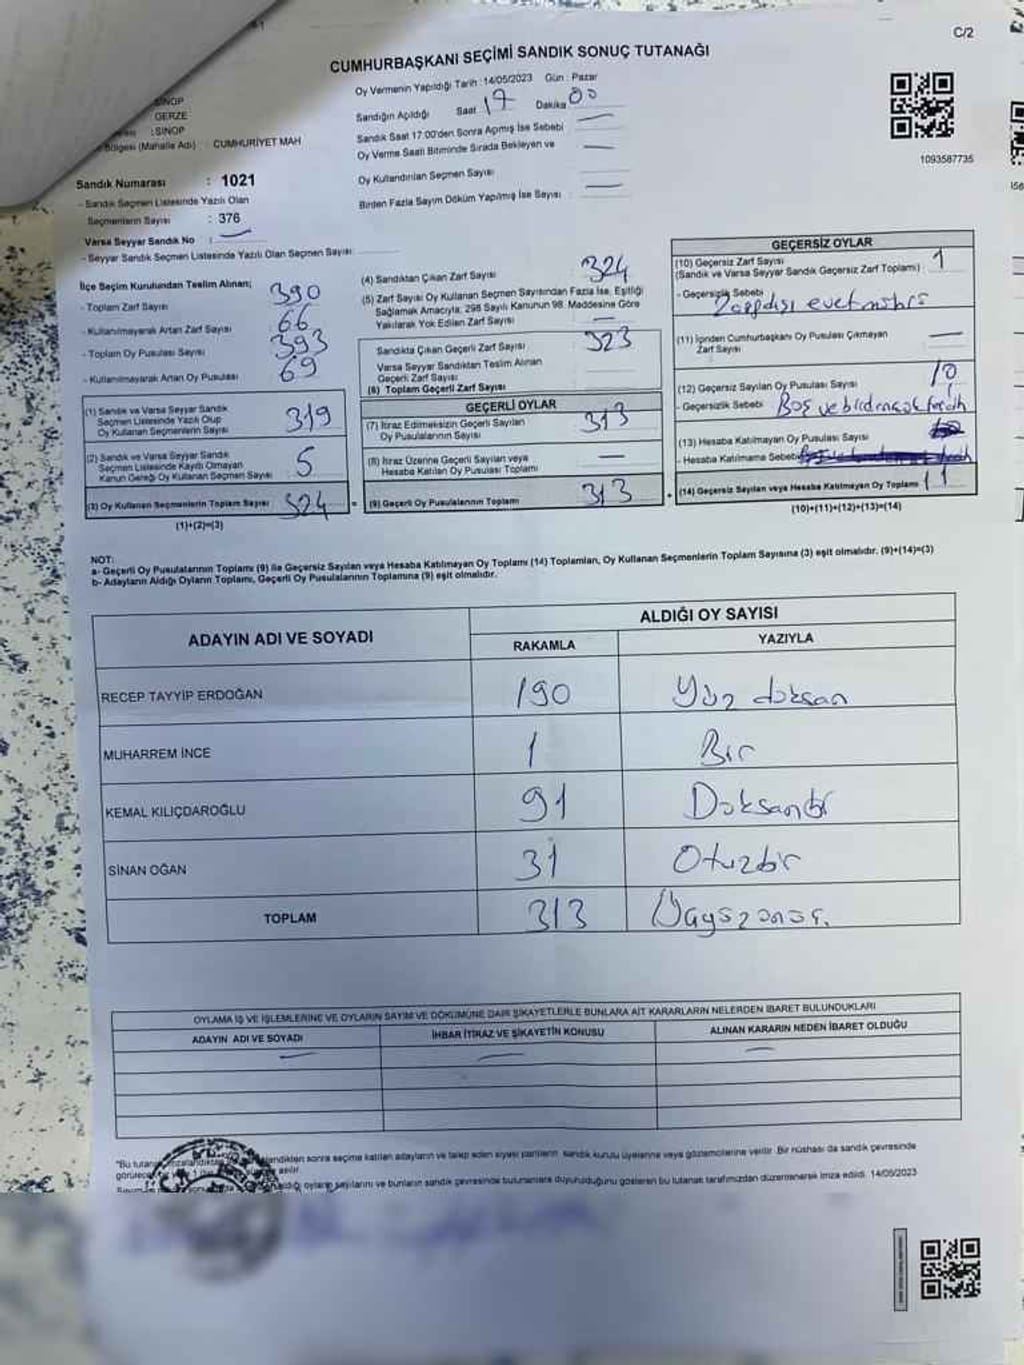 C/2
CUMHURBAŞKANI SEÇİMİ SANDIK SONUÇ TUTANAĞI
Oy Vermenin Yapıldığı Tarih : 14/05/2023 Gün : Pazar
Sandığın Açıldığı Saat 17 Dakika 00
Sandık Saat 17:00'den Sonra Açmış İse Sebebi
Oy Verme Saati Bitiminde Sırada Bekleyen ve
Oy Kullandırılan Seçmen Sayısı
Birden Fazla Sayım Döküm Yapılmış İse Sayısı :
1093587735
SİNOP
GERZE
: SİNOP
Bölgesi (Mahalle Adı) : CUMHURİYET MAH
Sandık Numarası : 1021
- Sandık Seçmen Listesinde Yazılı Olan
Seçmenlerin Sayısı : 376
Varsa Seyyar Sandık No :
- Seyyar Sandık Seçmen Listesinde Yazılı Olan Seçmen Sayısı:
İlçe Seçim Kurulundan Teslim Alınan;
- Toplam Zarf Sayısı : 390
- Kullanılmayarak Artan Zarf Sayısı : 66
- Toplam Oy Pusulası Sayısı : 393
- Kullanılmayarak Artan Oy Pusulası : 69
(1) Sandık ve Varsa Seyyar Sandık
Seçmen Listesinde Yazılı Olup
Oy Kullanan Seçmenlerin Sayısı : 319
(2) Sandık ve Varsa Seyyar Sandık
Seçmen Listesinde Kayıtlı Olmayan
Kanun Gereği Oy Kullanan Seçmen Sayısı : 5
(3) Oy Kullanan Seçmenlerin Toplam Sayısı : 324
(1)+(2)=(3)
(4) Sandıktan Çıkan Zarf Sayısı : 324
(5) Zarf Sayısı Oy Kullanan Seçmen Sayısından Fazla İse, Eşitliği
Sağlamak Amacıyla, 298 Sayılı Kanunun 98. Maddesine Göre
Yakılarak Yok Edilen Zarf Sayısı :
Sandıkta Çıkan Geçerli Zarf Sayısı : 323
Varsa Seyyar Sandıktan Teslim Alınan
Geçerli Zarf Sayısı
(6) Toplam Geçerli Zarf Sayısı :
GEÇERLİ OYLAR
(7) İtiraz Edilmeksizin Geçerli Sayılan
Oy Pusulalarının Sayısı : 313
(8) İtiraz Üzerine Geçerli Sayılan veya
Hesaba Katılan Oy Pusulası Toplamı :
= (9) Geçerli Oy Pusulalarının Toplamı : 313
GEÇERSİZ OYLAR
(10) Geçersiz Zarf Sayısı
(Sandık ve Varsa Seyyar Sandık Geçersiz Zarf Toplamı) : 1
- Geçersizlik Sebebi :
(11) İçinden Cumhurbaşkanı Oy Pusulası Çıkmayan
Zarf Sayısı
(12) Geçersiz Sayılan Oy Pusulası Sayısı : 10
- Geçersizlik Sebebi : Boş ve birden çok tercih
(13) Hesaba Katılmayan Oy Pusulası Sayısı :
- Hesaba Katılmama Sebebi
+ (14) Geçersiz Sayılan veya Hesaba Katılmayan Oy Toplamı : 11
(10)+(11)+(12)+(13)=(14)
NOT:
a- Geçerli Oy Pusulalarının Toplamı (9) ile Geçersiz Sayılan veya Hesaba Katılmayan Oy Toplamı (14) Toplamları, Oy Kullanan Seçmenlerin Toplam Sayısına (3) eşit olmalıdır. (9)+(14)=(3)
b- Adayların Aldığı Oyların Toplamı, Geçerli Oy Pusulalarının Toplamına (9) eşit olmalıdır.
ADAYIN ADI VE SOYADI
ALDIĞI OY SAYISI
RAKAMLA YAZIYLA
RECEP TAYYİP ERDOĞAN 190 Yüz doksan
MUHARREM İNCE 1 Bir
KEMAL KILIÇDAROĞLU 91 Doksanbir
SİNAN OĞAN 31 Otuzbir
TOPLAM 313 Üçyüzonüç.
OYLAMA İŞ VE İŞLEMLERİNE VE OYLARIN SAYIM VE DÖKÜMÜNE DAİR ŞİKAYETLERLE BUNLARA AİT KARARLARIN NELERDEN İBARET BULUNDUKLARI
ADAYIN ADI VE SOYADI İHBAR İTİRAZ VE ŞİKAYETİN KONUSU ALINAN KARARIN NEDEN İBARET OLDUĞU
sonra seçime katılan adayların ve talep eden siyasi partilerin, sandık kurulu üyelerine veya gözlemcilerine verilir. Bir nüshası da sandık çevresinde
asılır.
oyların sayılarını ve bunların sandık çevresinde bulunanlara duyurulduğunu gösteren bu tutanak tarafımızdan düzenlenerek imza edildi. 14/05/2023